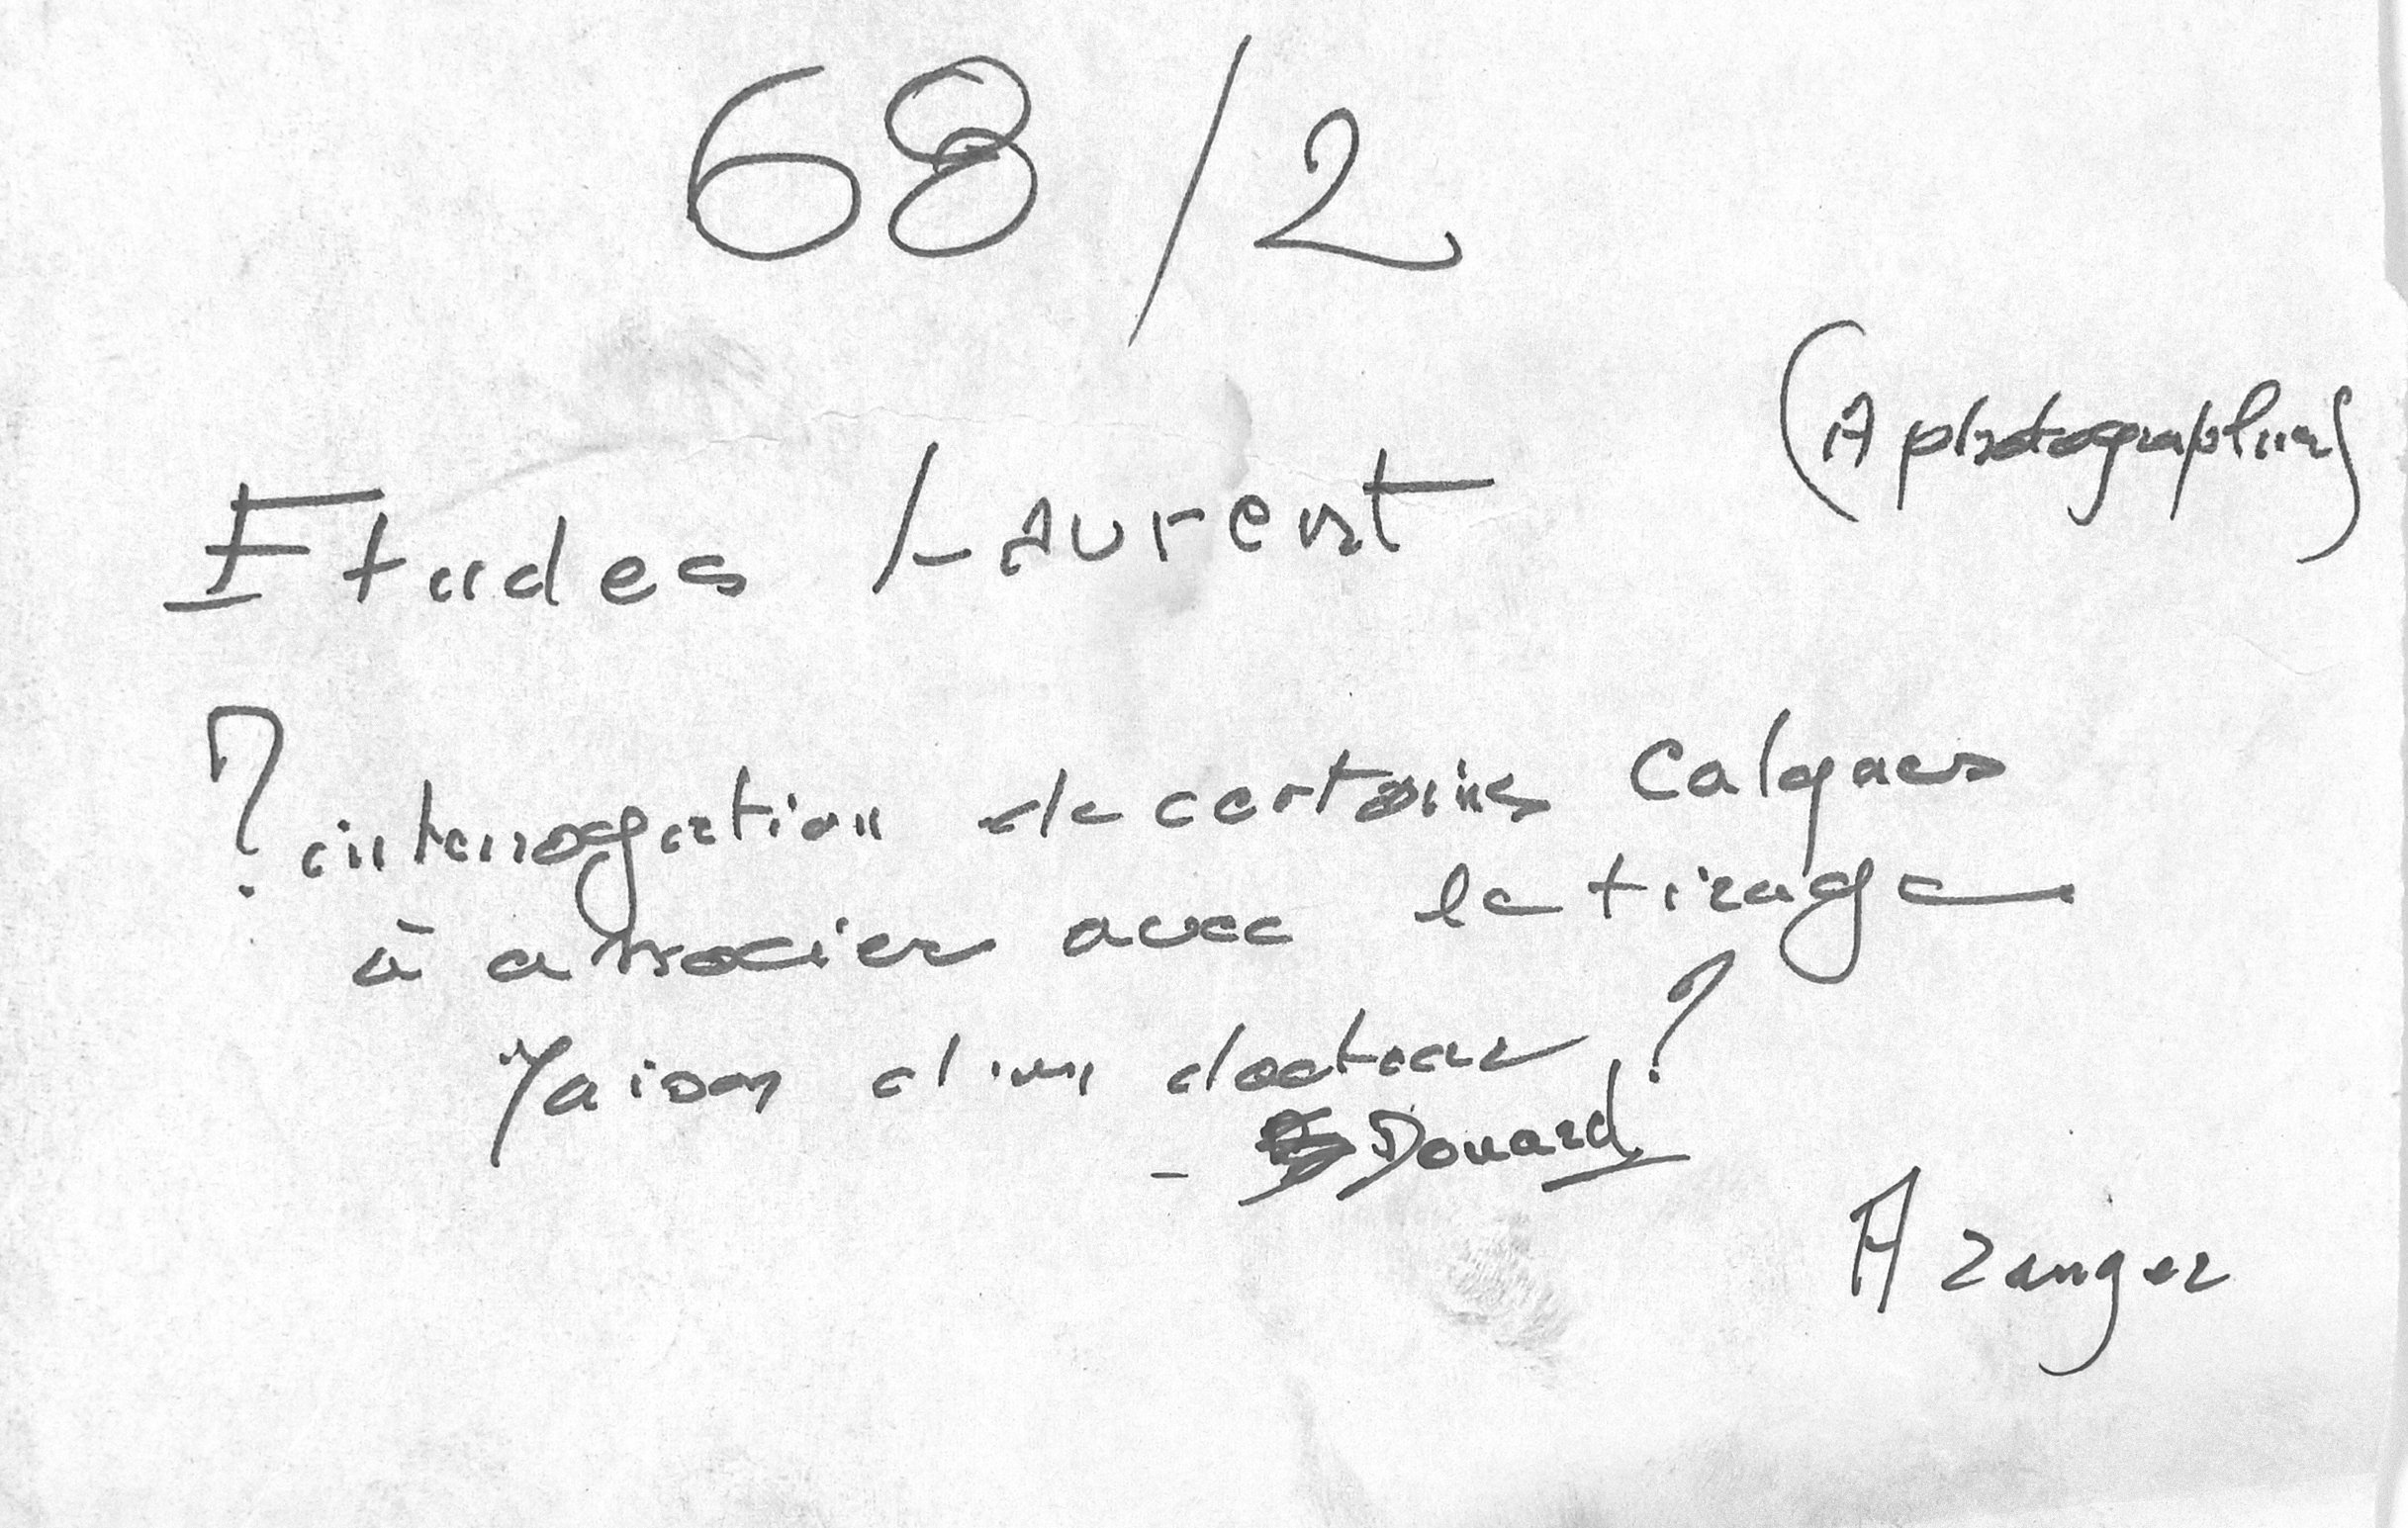 68/2
(A photographier)
Etudes Laurent
? interrogation de certains Calques
à associer avec le tirage
Maison d'un docteur ?
- Douard
A ranger